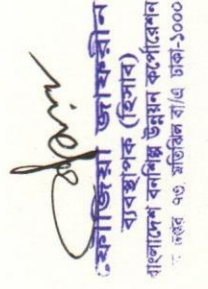 ফৌজিয়া জাফরীন
ব্যবস্থাপক (হিসাব)
বাংলাদেশ বনশিল্প উন্নয়ন কর্পোরেশন
৭৩, মতিঝিল বা/এ ঢাকা-১০০০